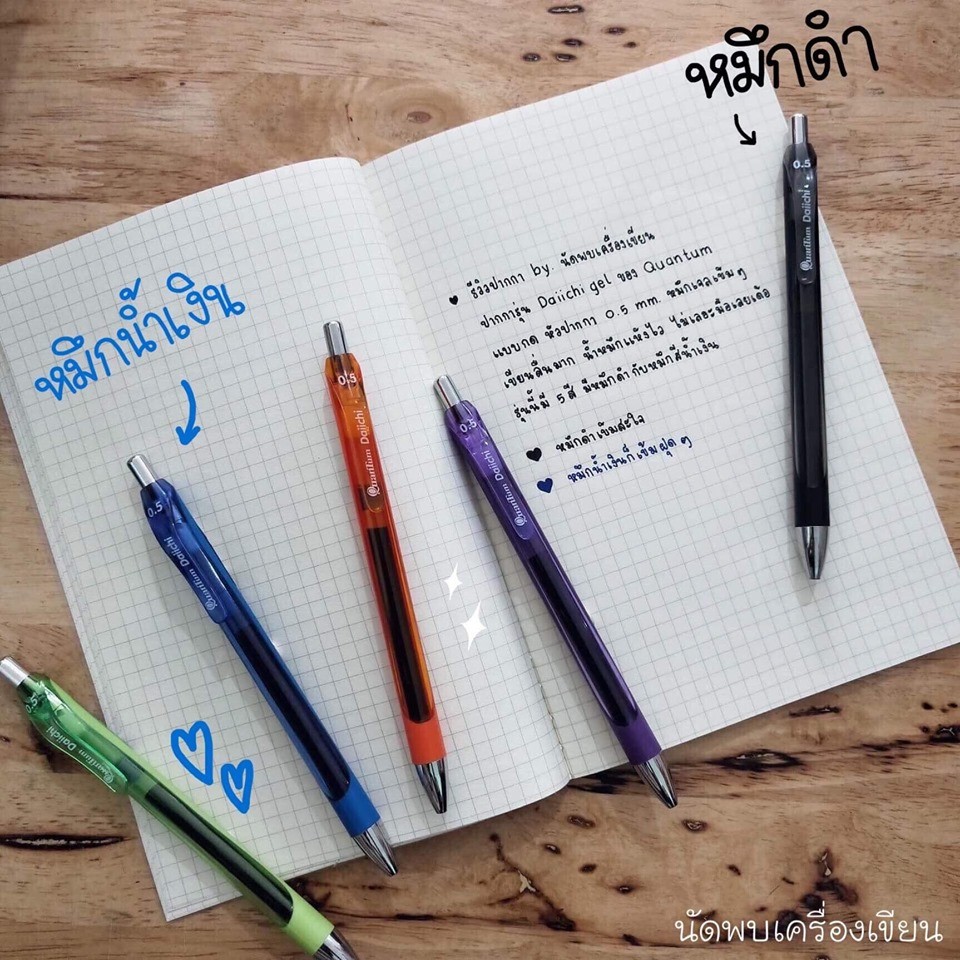 หมึกดำ
หมึกน้ำเงิน
รีวิวปากกา by. นัดพบเครื่องเขียน
ปากการุ่น Daiichi gel ของ Quantum
แบบกด หัวปากกา 0.5 mm. หมึกเจลเข้มๆ
เขียนลื่นมาก น้ำหมึกแห้งไว ไม่เลอะมือเลยเด้อ
รุ่นนี้มี 5 สี มีหมึกดำกับหมึกสีน้ำเงิน
หมึกดำเข้มสะใจ
หมึกน้ำเงินก็เข้มฝุดๆ
0.5
Quantum Daiichi
0.5
Quantum Daiichi
0.5
Quantum Daiichi
0.5
Quantum Daiichi
0.5
Quantum Daiichi
นัดพบเครื่องเขียน